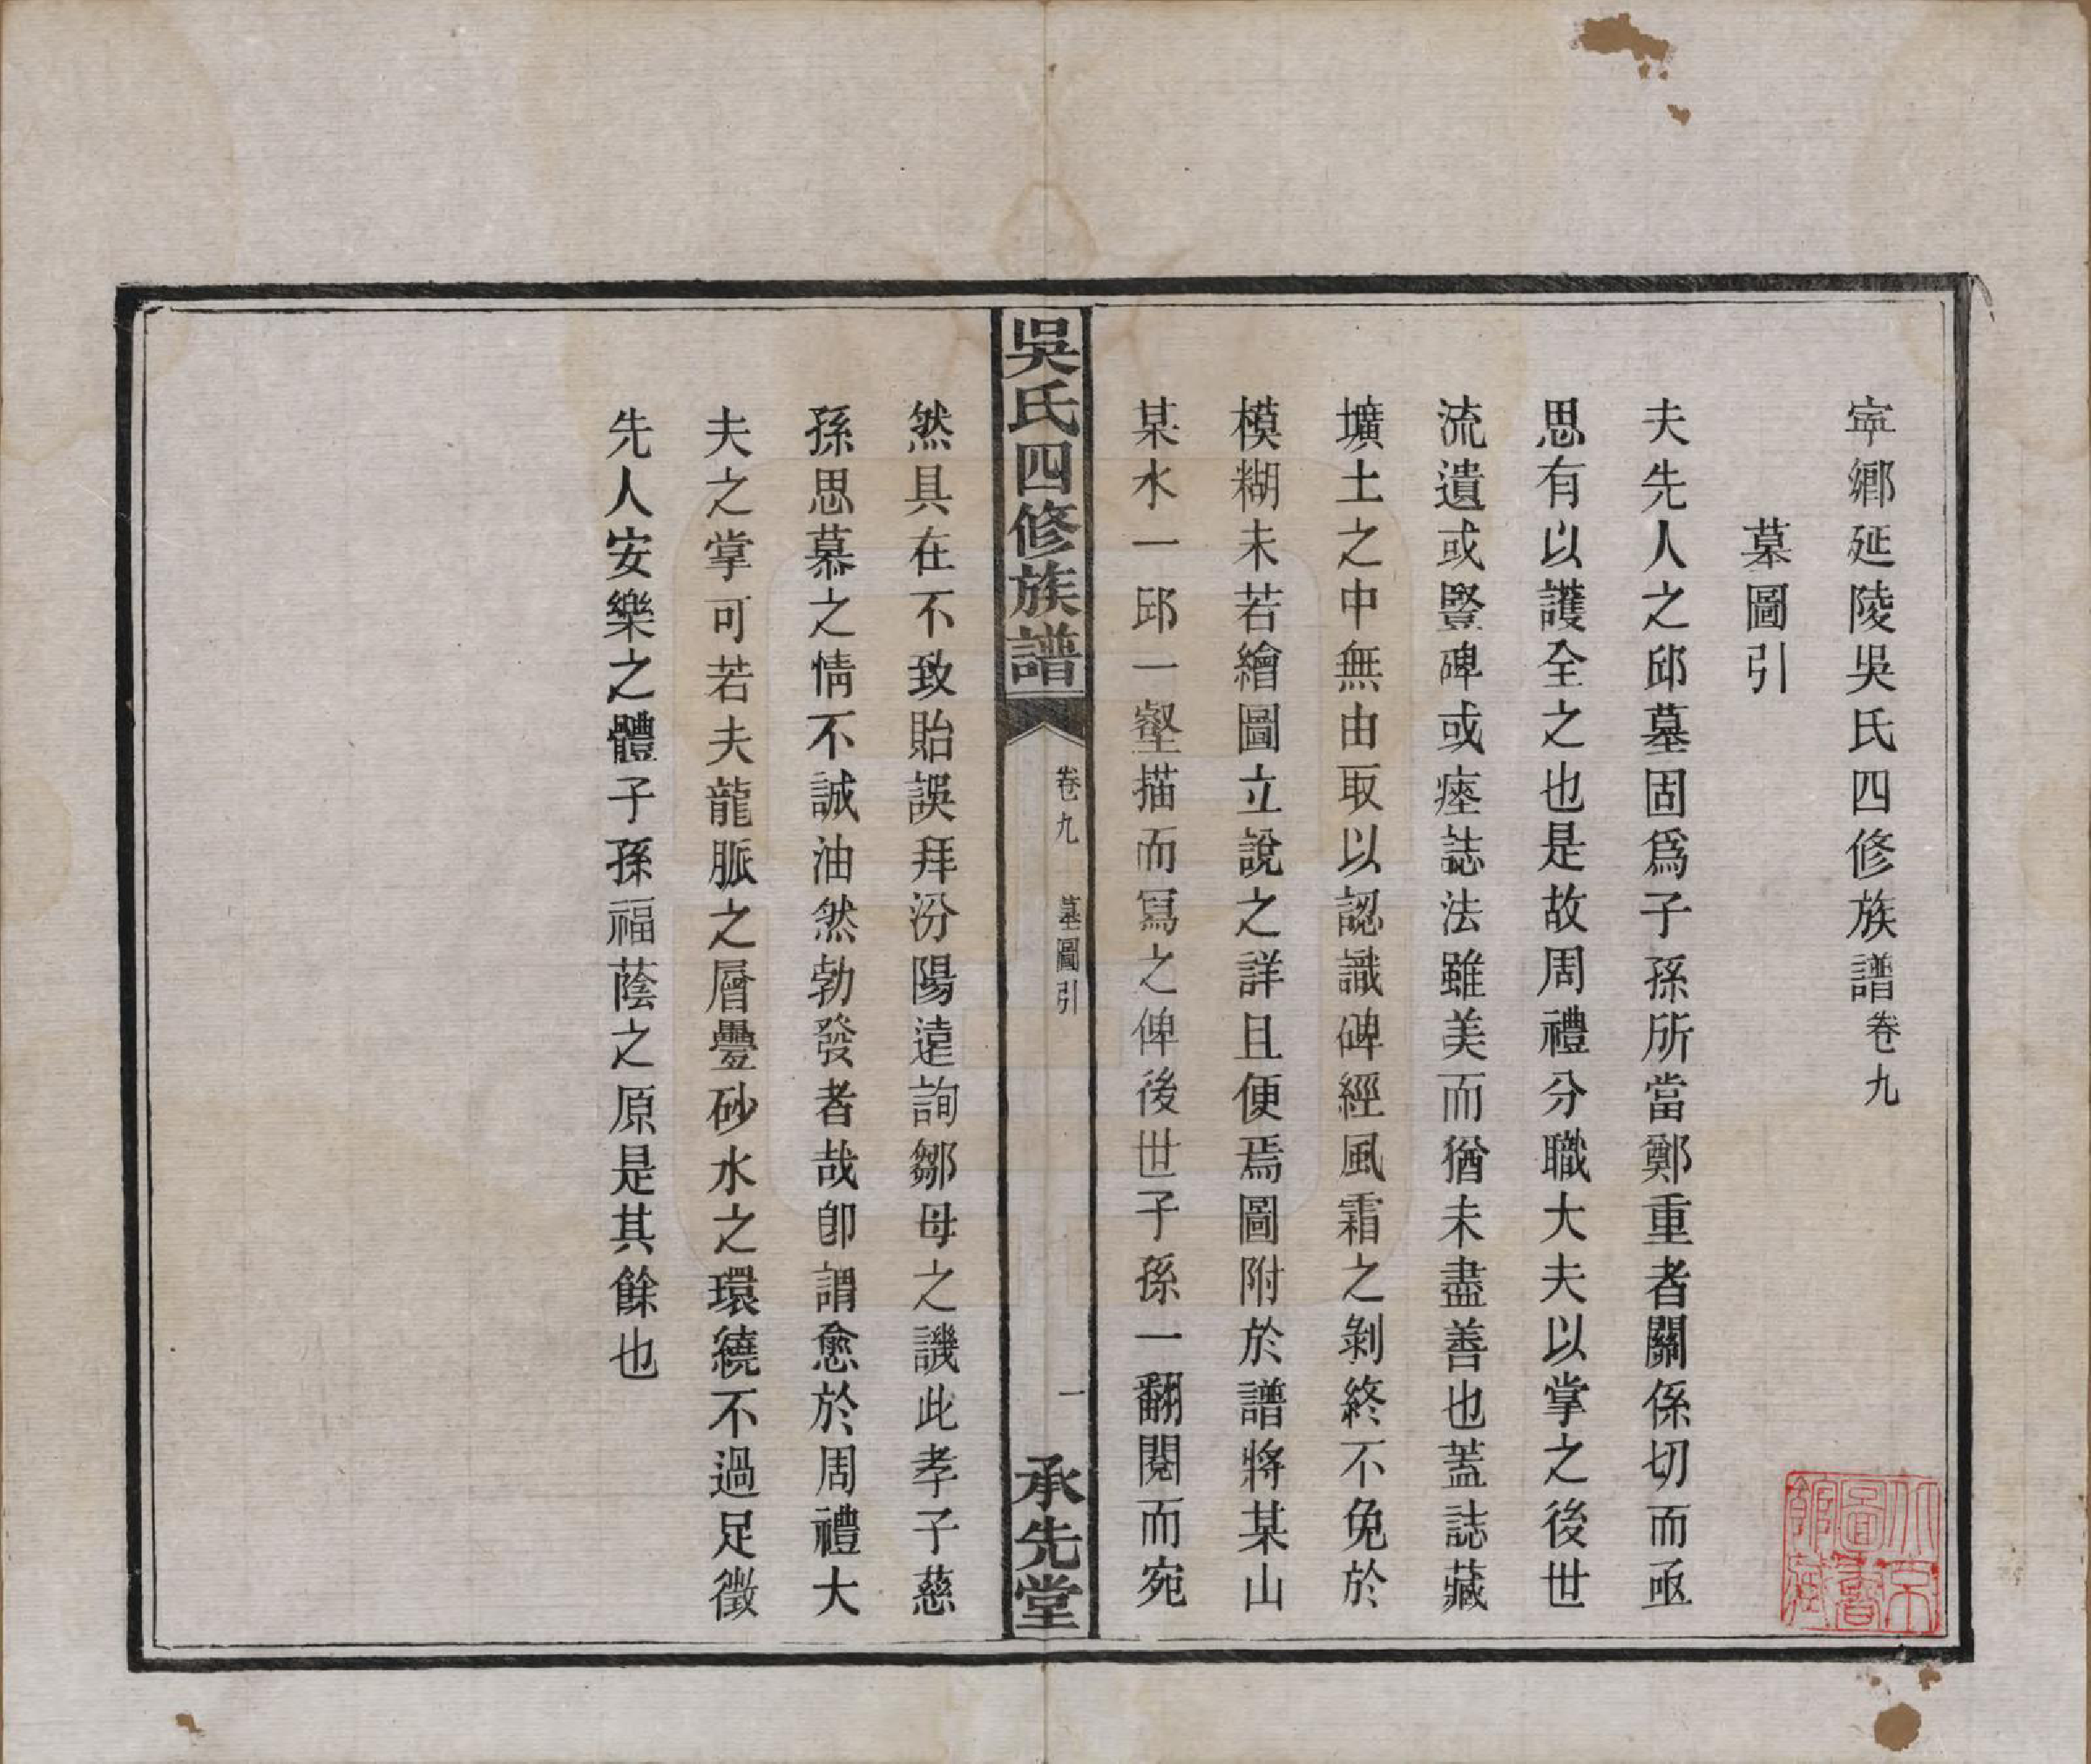 寕鄉延陵吳氏四修族譜卷九
墓圖引
夫先人之邱墓固爲子孫所當鄭重者關係切而亟
思有以護全之也是故周禮分職大夫以掌之後世
流遺或豎碑或瘞誌法雖美而猶未盡善也蓋誌藏
壙土之中無由取以認識碑經風霜之剝終不免於
模糊未若繪圖立說之詳且便焉圖附於譜將某山
某水一邱一壑描而寫之俾後世子孫一翻閱而宛
吳氏四修族譜
卷九 墓圖引
一
承先堂
然具在不致貽誤拜汾陽遠詢鄒母之譏此孝子慈
孫思慕之情不誠油然勃發者哉卽謂愈於周禮大
夫之掌可若夫龍脈之層疊砂水之環繞不過足徵
先人安樂之體子孫福蔭之原是其餘也
北京
圖書
館藏